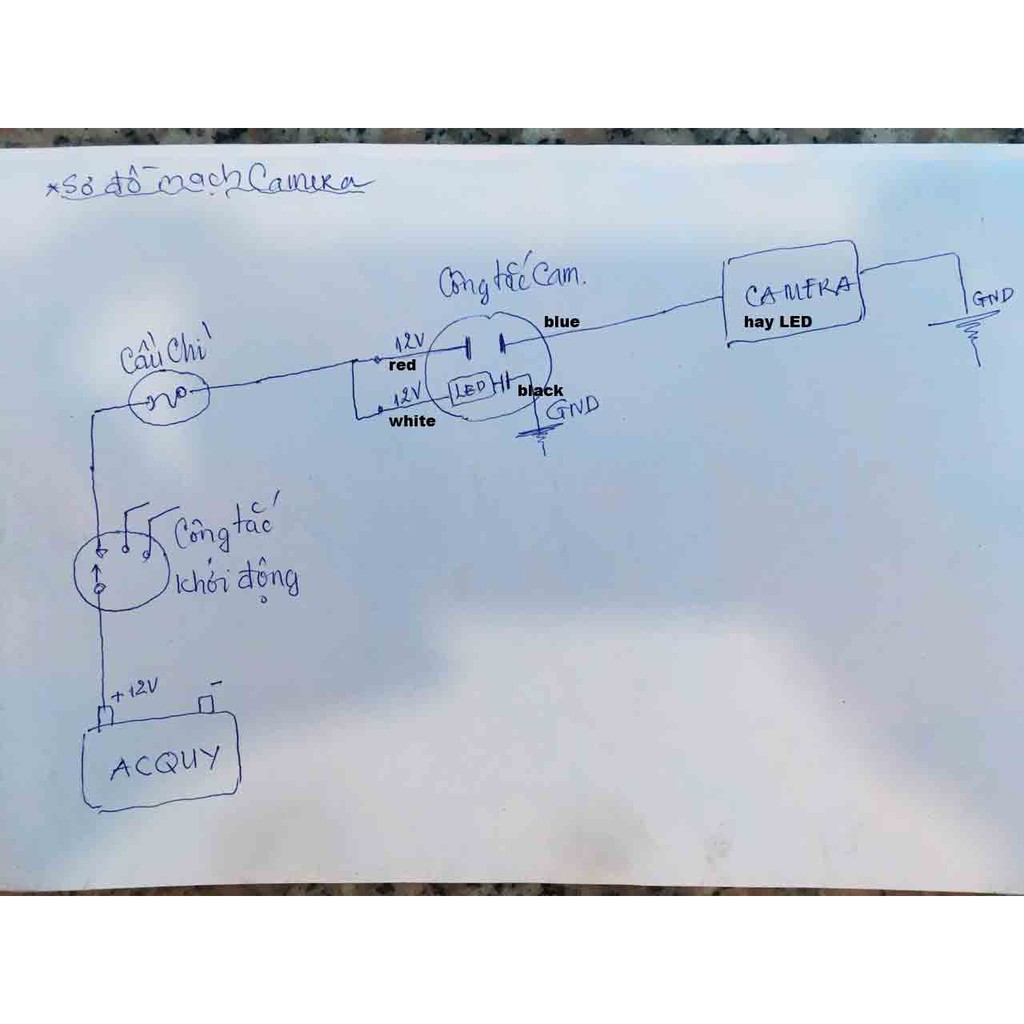 *Sơ đồ mạch Camera
Công tắc Cam.
blue
CAMERA
hay LED
GND
12V
red
Cầu chì
LED
12V
black
white
GND
Công tắc
khởi động
+12V
-
ACQUY